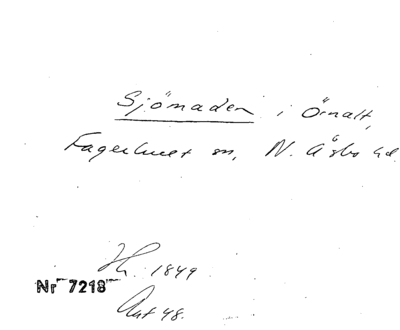 Sjömaden i Örnalt,
Fagerhult sn, N. Åsbo hd
Hr. 1849
Nr 7218
Ant 48.